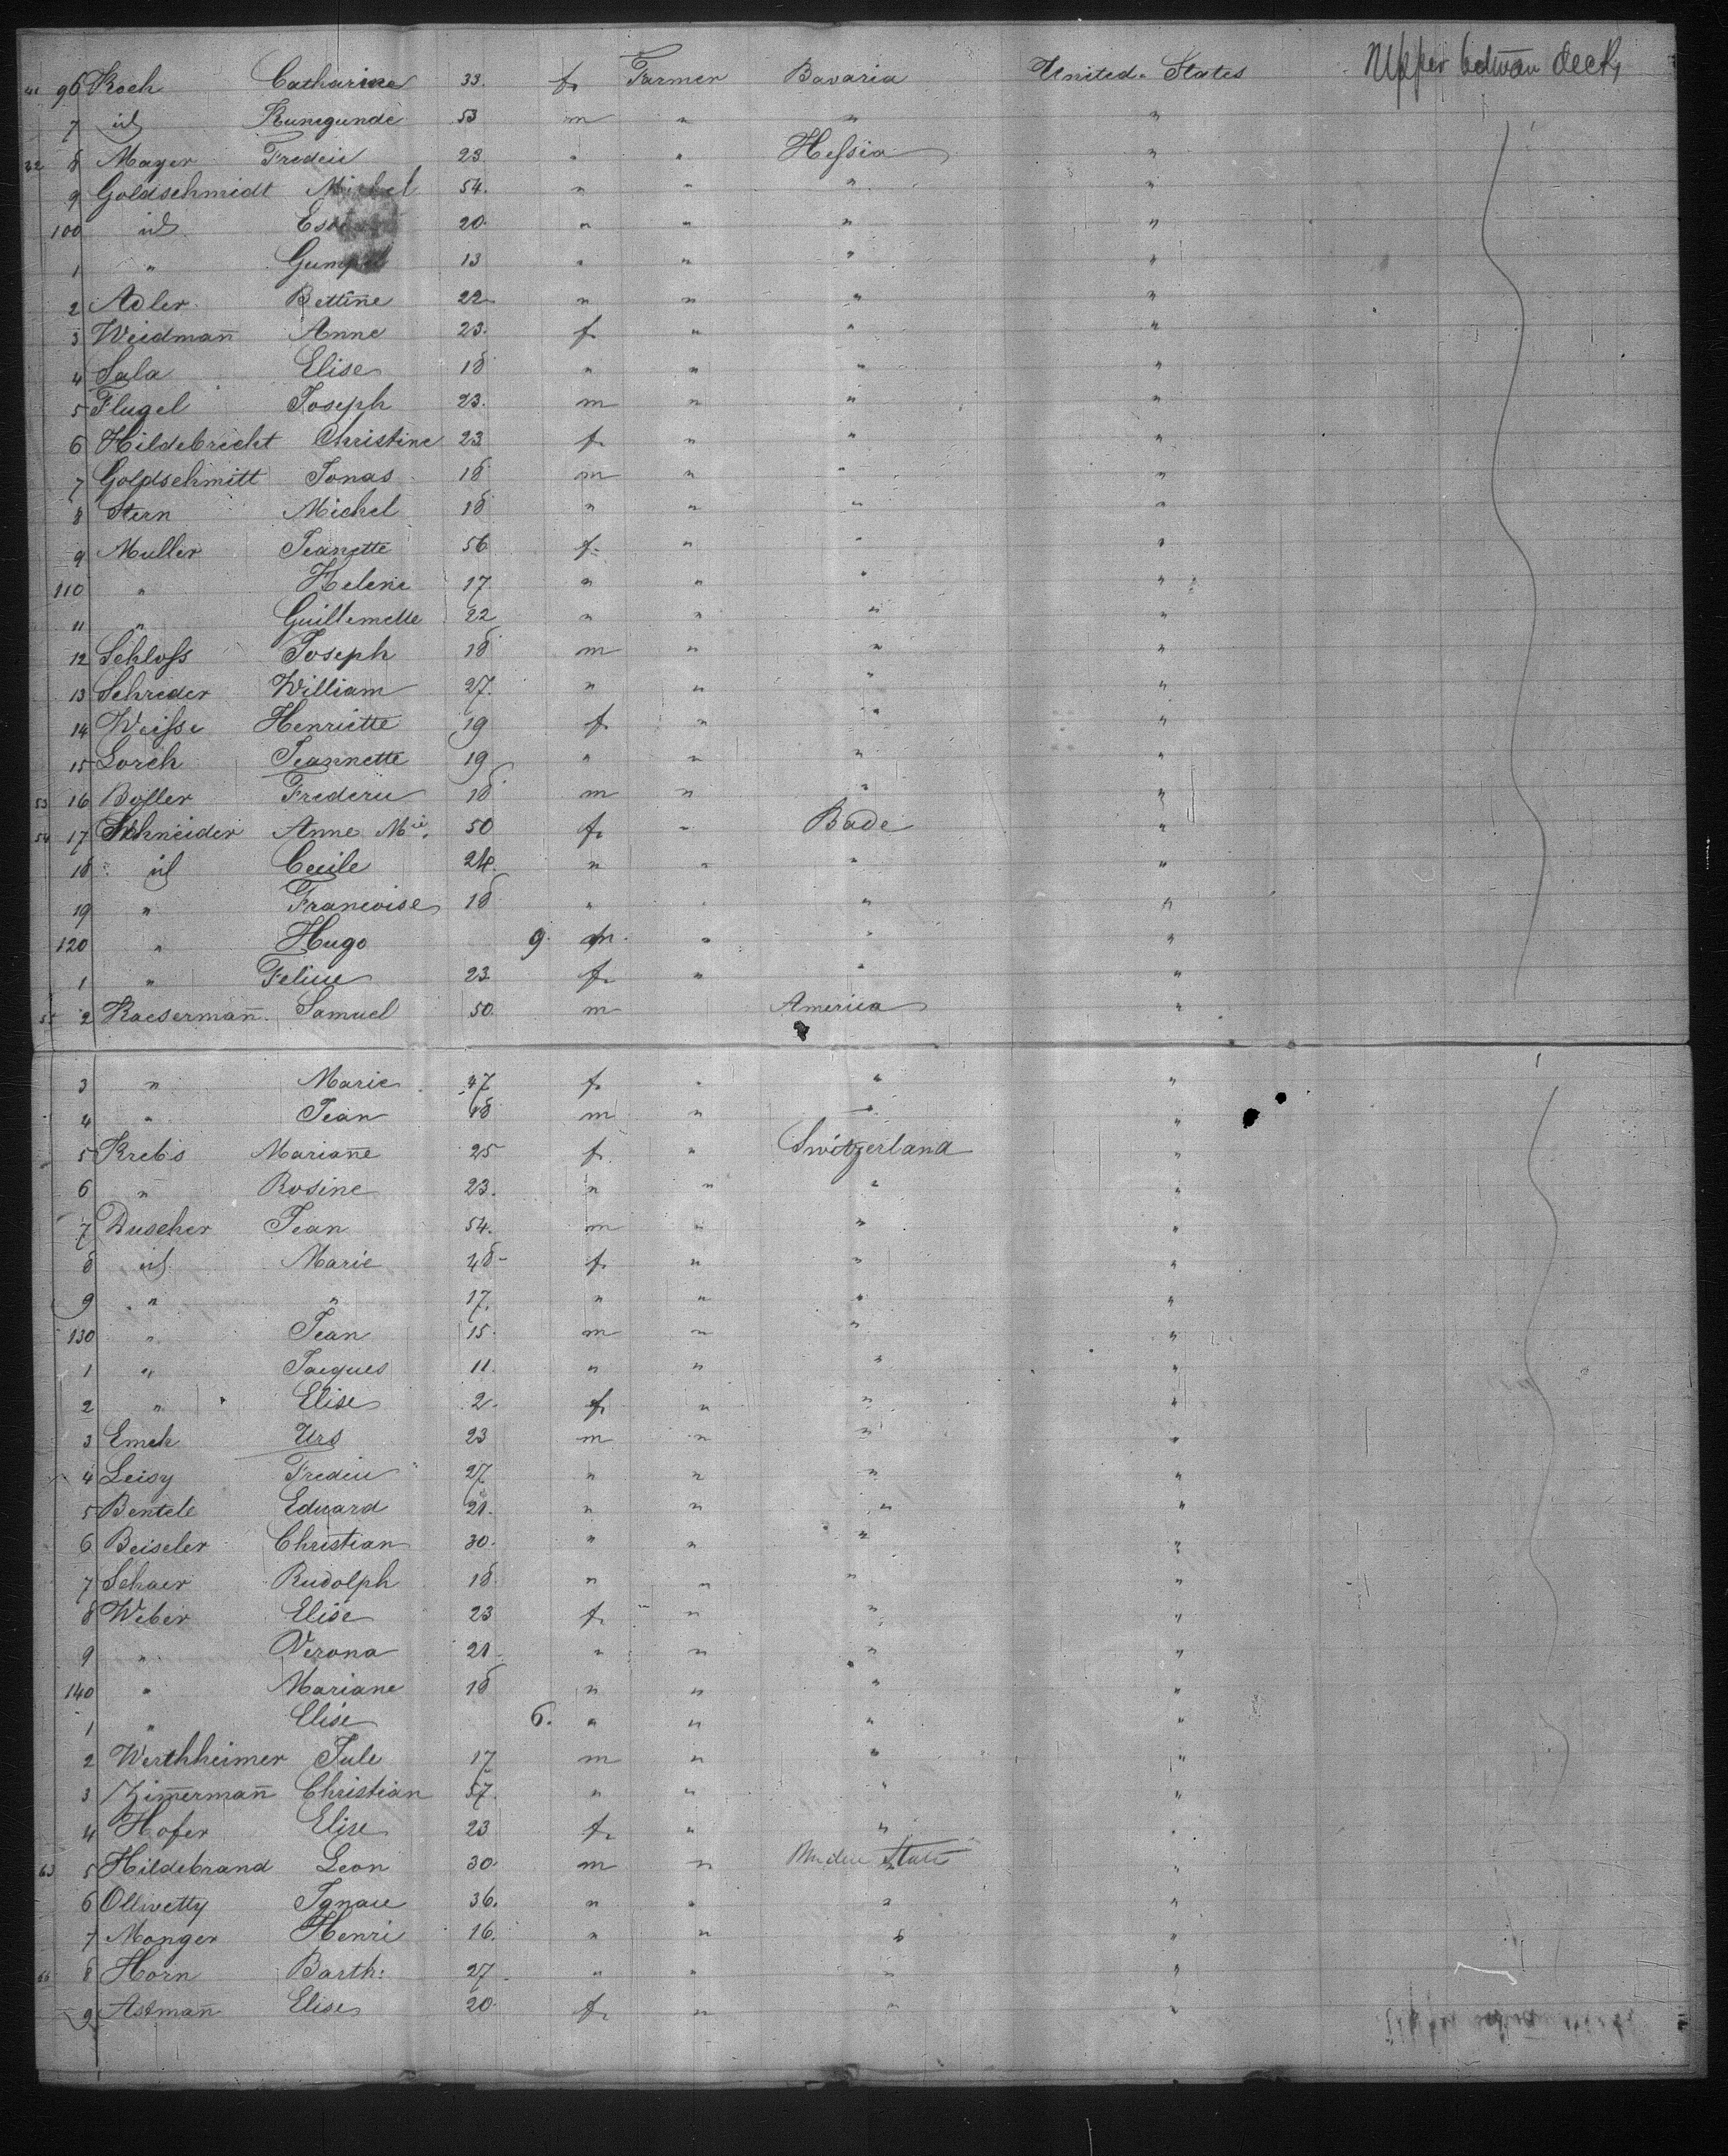 Upper betwān deck,
96 Koch Catharine 33. f. Farmer Bavaria United States
7 id Kunegunde 53 m " " "
8 Mayer Frederic 23 " " Heſsia "
9 Goldschmidt Michel 54. " " " "
100 id 20. " " " "
1 " Gumpel 13 " " " "
2 Adler Bettine 22 " " " "
3 Weidmañ Anne 23. f. " " "
4 Sala Elise 18 " " " "
5 Flugel Joseph 23. m " " "
6 Hildebrecht Christine 23 f. " " "
7 Goldschmitt Jonas 18 m " " "
8 Stern Michel 18 " " " "
9 Muller Jeanette 56 f. " " "
110 " Helene 17. " " " "
11 " Guillemette 22 " " " "
12 Schloſs Joseph 18 m " " "
13 Schreder William 27. " " " "
14 Weiſse Henriette 19 f. " " "
15 Lorch Jeannette 19 " " " "
53 16 Boſler Frederic 18 m " " "
54 17 Schneider Anne Mie. 50 f. " Bade "
18 id Cecile 24. " " " "
19 " Francoise 18 " " " "
120 " Hugo 9. m. " " "
1 " Felicie 23. f. " " "
55 2 Kaesermañ Samuel 50. m America "
3 " Marie 47 f. " " "
4 " Jean 18 m " " "
5 Krebs Mariañe 25 f. " Switzerland "
6 " Rosine 23. " " " "
7 Duscher Jean 54. m " " "
8 id Marie 48 f. " " "
9 " " 17. " " " "
130 " Jean 15. m " " "
1 " Jacques 11. " " " "
2 " Elise 2. f. " " "
3 Emch Urs 23 m " " "
4 Leisy Frederic 27 " " " "
5 Bentele Eduard 21. " " " "
6 Beiseler Christian 30. " " " "
7 Schaer Rudolph 18 " " " "
8 Weber Elise 23 f. " " "
9 " Verona 21 " " " "
140 " Mariane 18 " " " "
1 " Elise 6. " " " "
2 Werthheimer Jule 17 m " " "
3 Zim̃ermañ Christian 57. " " "
4 Hofer Elise 23 f. " " "
63 5 Hildebrand Leon 30. m " State "
6 Ollwetty Ignace 36. " " " "
7 Monger Henri 16. " " " "
66 8 Horn Barth: 27 " " " "
9 Astmañ Elise 20. f. " " "